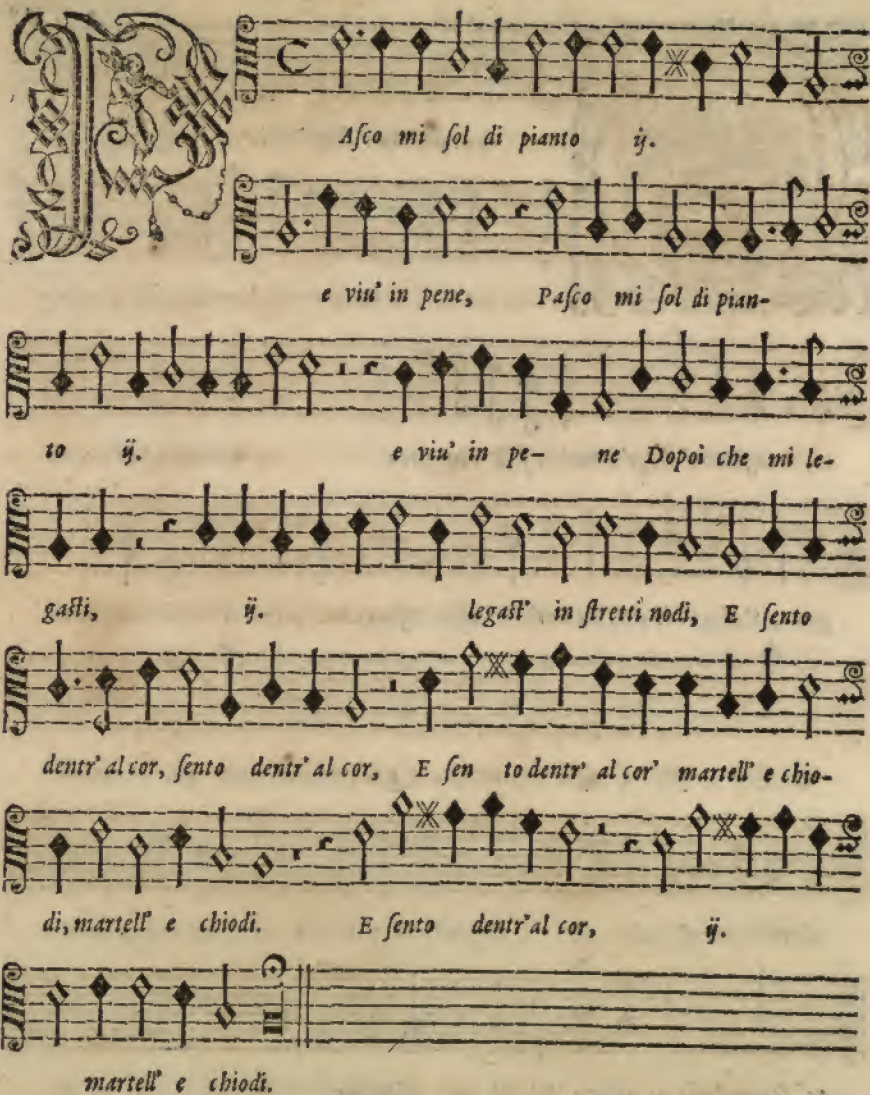 P
Aſco mi ſol di pianto ij.
e viu' in pene, Paſco mi ſol di pian-
to ij. e viu' in pe- ne Dopoi che mi le-
gaſti, ij. legaſt' in ſtretti nodi, E ſento
dentr' al cor, ſento dentr' al cor, E ſen to dentr' al cor' martell' e chio-
di, martell' e chiodi. E ſento dentr' al cor, ij.
martell' e chiodi.